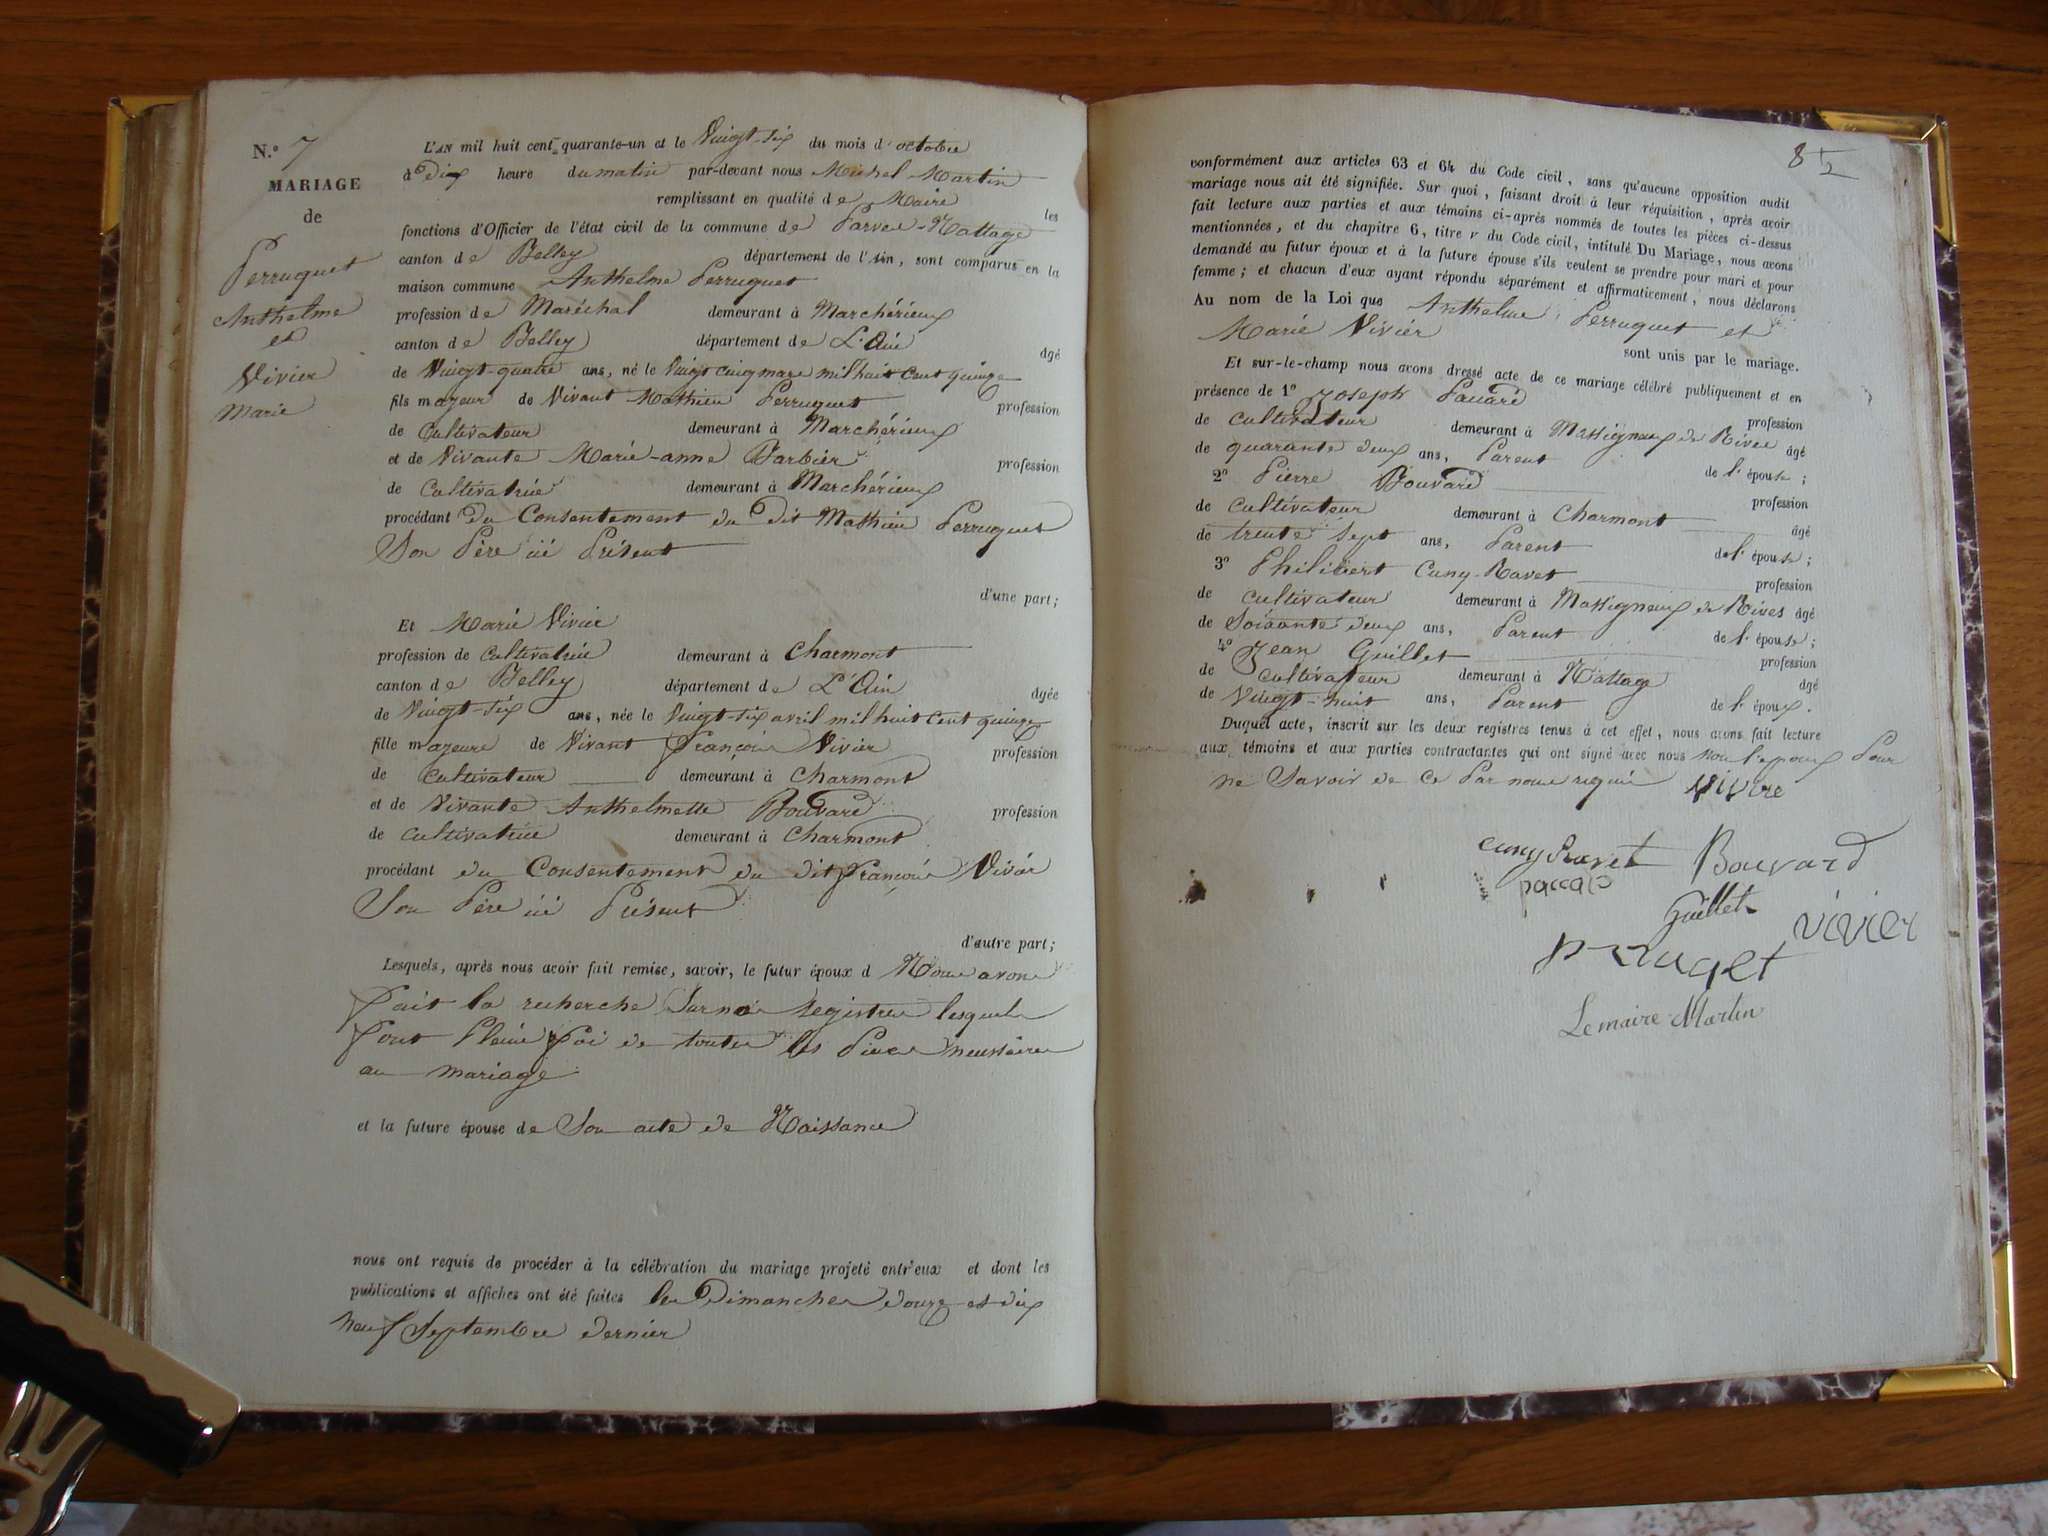 N.º 7
MARIAGE
de
Perruquet
Anthelme
et
Vivier
Marie
L'AN mil huit cent quarante-un et le Vingt-six du mois d'octobre
à Dix heure du matin par-devant nous Michel Martin
remplissant en qualité de Maire les
fonctions d'Officier de l'état civil de la commune de Parves-Nattage
canton de Belley département de l'Ain, sont comparus en la
maison commune Anthelme Perruquet
profession de Maréchal demeurant à Marchérieux
canton de Belley département de L'Ain âgé
de Vingt-quatre ans, né le Vingt cinq mars mil huit cent quinze
fils majeur de Vivant Mathieu Perruquet profession
de Cultivateur demeurant à Marchérieux
et de Vivante Marie-anne Barbier profession
de Cultivatrice demeurant à Marchérieux
procédant du Consentement du dit Mathieu Perruquet
Son Père ici Présent
d'une part;
Et Marie Vivier
profession de cultivatrice demeurant à Charmont
canton de Belley département de L'Ain âgée
de Vingt-six ans, née le Vingt-six avril mil huit cent quinze
fille majeure de Vivant françois Vivier profession
de cultivateur demeurant à Charmont
et de Vivante Anthelmette Bouvard profession
de cultivatrice demeurant à Charmont
procédant du Consentement du dit françois Vivier
Son Père ici Présent
d'autre part;
Lesquels, après nous avoir fait remise, savoir, le futur époux d Nous avons
fait la recherche Sur nos registres lesquels
font Pleine foi de toutes les Pièces necessaires
au mariage
et la future épouse de Son acte de Naissance
nous ont requis de procéder à la célébration du mariage projeté entr'eux et dont les
publications et affiches ont été faites les Dimanches douze et dix
neuf Septembre dernier
8
conformément aux articles 63 et 64 du Code civil, sans qu'aucune opposition audit
mariage nous ait été signifiée. Sur quoi, faisant droit à leur réquisition, après avoir
fait lecture aux parties et aux témoins ci-après nommés de toutes les pièces ci-dessus
mentionnées, et du chapitre 6, titre v du Code civil, intitulé Du Mariage, nous avons
demandé au futur époux et à la future épouse s'ils veulent se prendre pour mari et pour
femme; et chacun d'eux ayant répondu séparément et affirmativement, nous déclarons
Au nom de la Loi que Anthelme Perruquet et
Marie Vivier sont unis par le mariage.
Et sur-le-champ nous avons dressé acte de ce mariage célébré publiquement et en
présence de 1º Joseph profession
de cultivateur demeurant à Massigneux de Rives âgé
de quarante deux ans, Parent de l'épouse;
2º Pierre Bouvard profession
de cultivateur demeurant à Charmont âgé
de trente sept ans, Parent de l'épouse;
3º Philibert Cuny-Ravet profession
de cultivateur demeurant à Massigneux de Rives âgé
de Soixante deux ans, Parent de l'épouse;
4º Jean Guillet profession
de cultivateur demeurant à Nattage âgé
de Vingt-huit ans, Parent de l'époux.
Duquel acte, inscrit sur les deux registres tenus à cet effet, nous avons fait lecture
aux témoins et aux parties contractantes qui ont signé avec nous non l'epoux Pour
ne Savoir de ce Par nous requis
cuny Ravet Bouvard
Guillet vivier
Le maire Martin